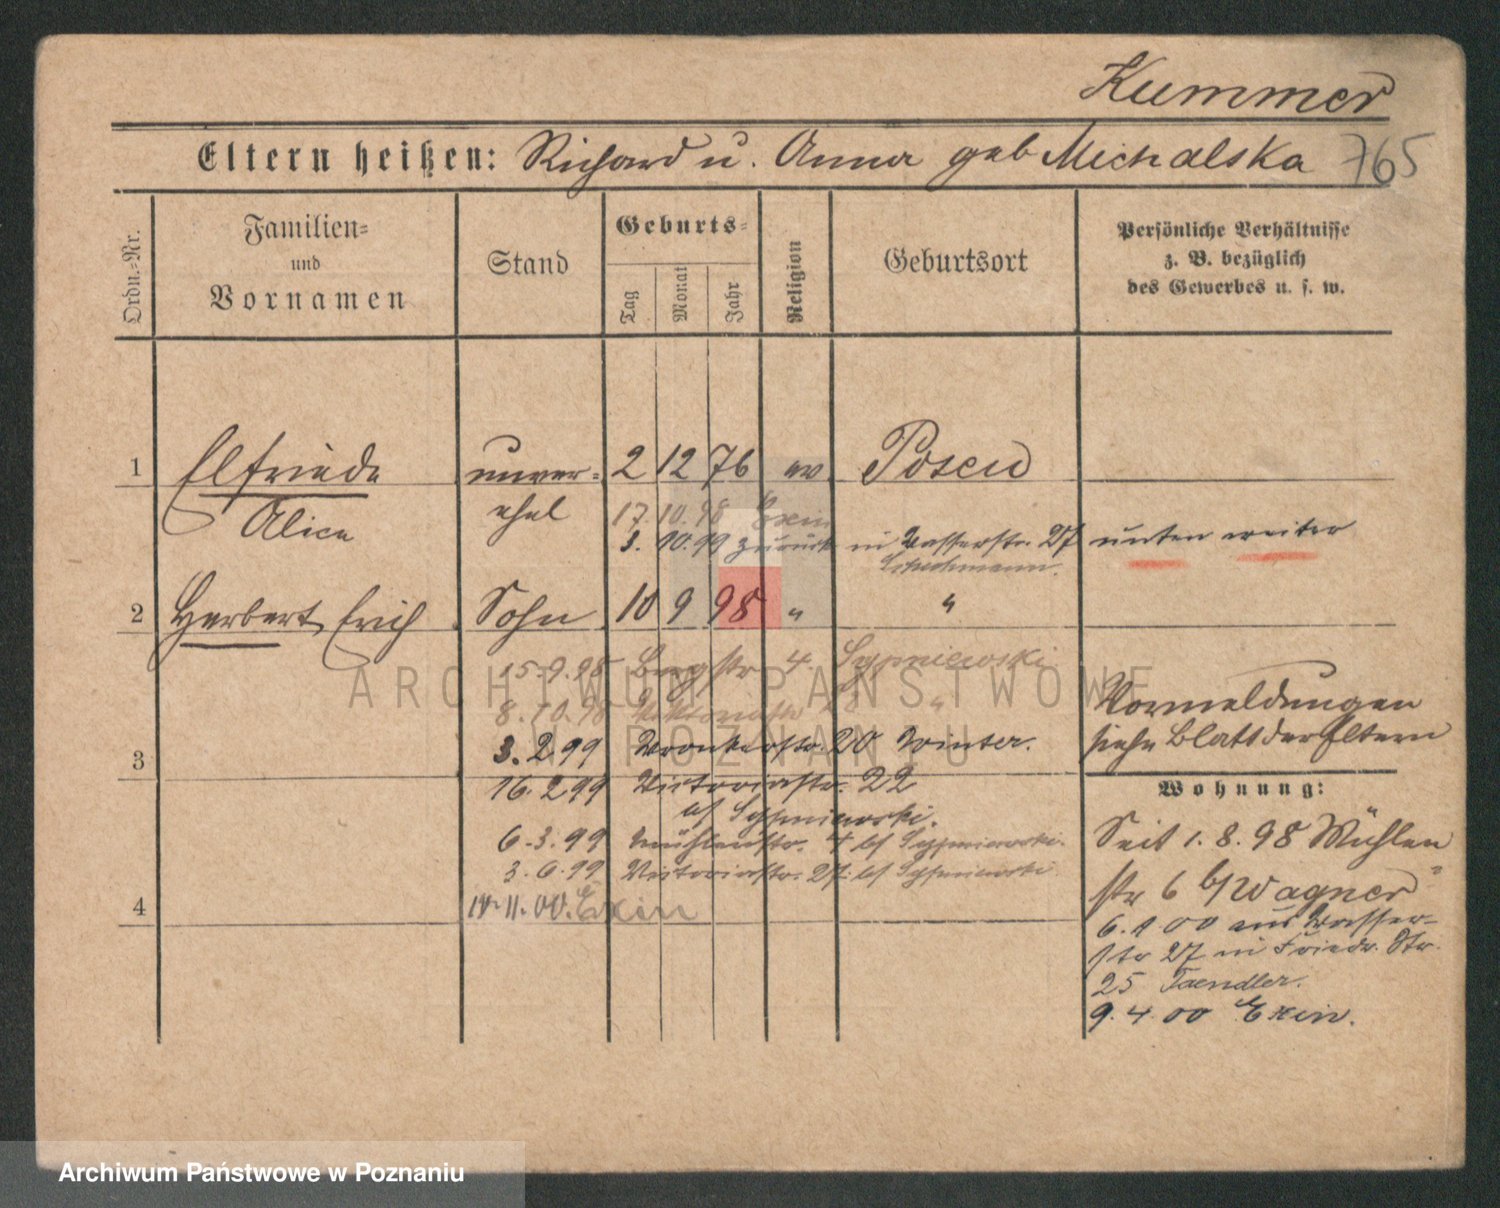 Kummer
Eltern heißen: Richard u. Anna geb Michalska 765
Ordn.-Nr.
Familien- und Vornamen
Stand
Geburts-
Tag
Monat
Jahr
Religion
Geburtsort
Persönliche Verhältnisse
z. B. bezüglich
des Gewerbes u. s. w.
1 Elfriede unver- 2 12 76 ev Posen
Alice ehel 17. 10. 98 Exin
3. 10. 99 zurück in Wasserstr. 27 unten weiter
2 Herbert Erich Sohn 10 9 98 " "
15. 9. 98 Bergstr 4. Sypniewski
8. 10. 98 Viktoriastr "
3 3. 2. 99 Wronkerstr. 20 Winter.
16. 2 99 Victoriastr. 22
b/ Sypniewski.
6. 3. 99 Mühlenstr. 4 b/ Sypniewski.
3. 6. 99 Victoriastr. 27. b/ Sypniewski
4 11. 00. Exin
Vormeldungen
siehe Blatt der Eltern
Wohnung:
Seit 1. 8. 98 Mühlen
str 6 b/Wagner
6. 1 00 aus Wasser-
str 27 in Friedr. Str.
25 Taendler.
9. 4. 00 Exin.
ARCHIWUM PAŃSTWOWE
W POZNANIU
Archiwum Państwowe w Poznaniu